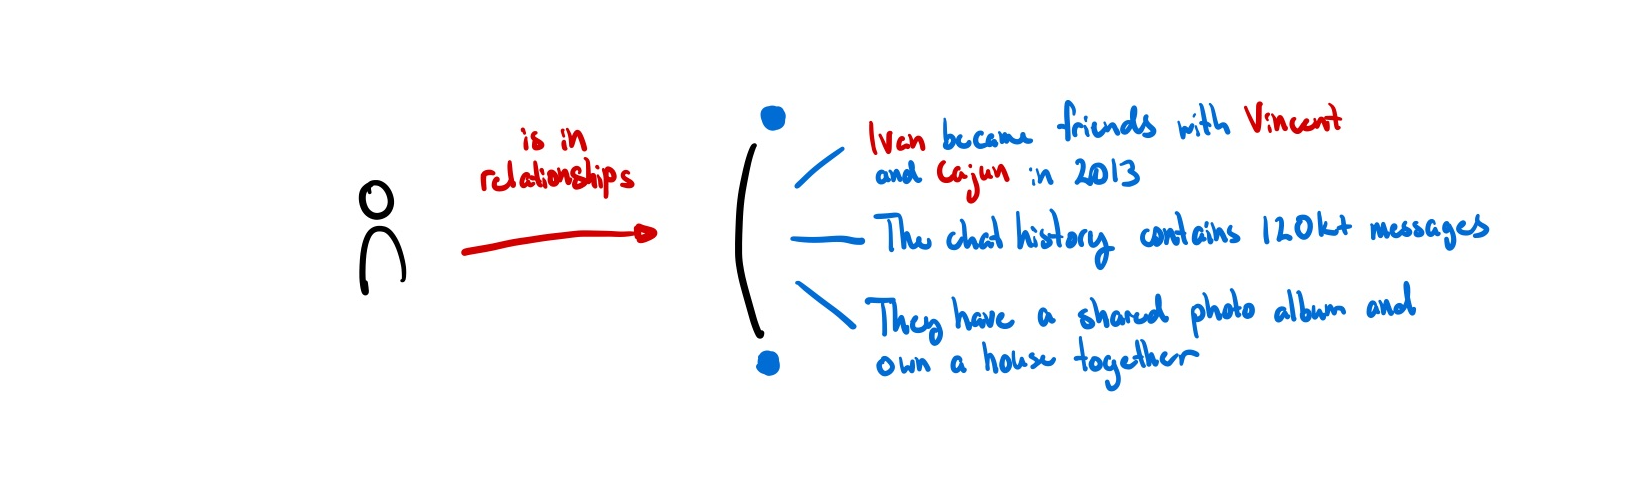 is in
relationships
Ivan became friends with Vincent
and Cajun in 2013
The chat history contains 120k+ messages
They have a shared photo album and
own a house together